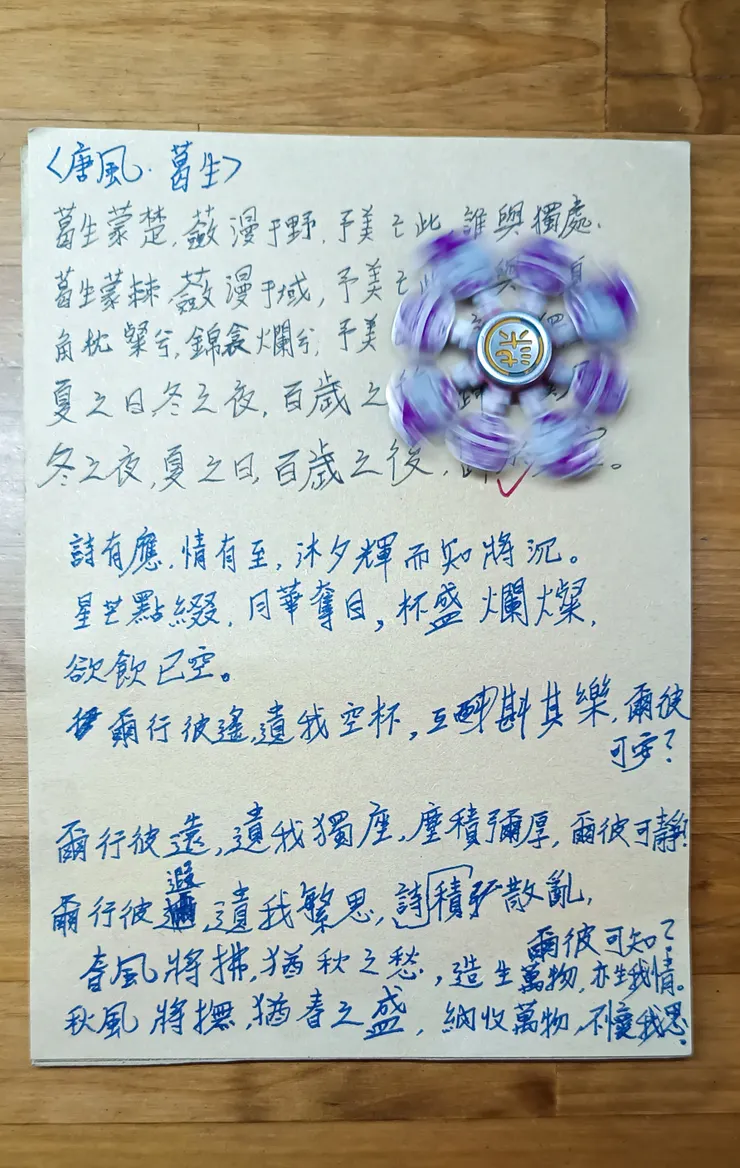 〈唐風·葛生〉
葛生蒙楚,蘞蔓于野,予美亡此,誰與獨處.
葛生蒙棘,蘞蔓于域,予美亡此
角枕粲兮,錦衾爛兮,予美
夏之日冬之夜,百歲之
冬之夜,夏之日,百歲之後,
詩有應,情有至,沐夕輝而知將沉。
星芒點綴,月華奪目,杯盛爛燦,
欲飲已空。
爾行彼遙,遺我空杯,互斟其樂,爾彼
可安?
爾行彼遠,遺我獨座,塵積彌厚,爾彼可靜?
遐
爾行彼,遺我繁思,詩積散亂,
爾彼可知?
春風將拂,猶秋之愁,造生萬物,亦生我情。
秋風將撫,猶春之盛,納收萬物,不我思.